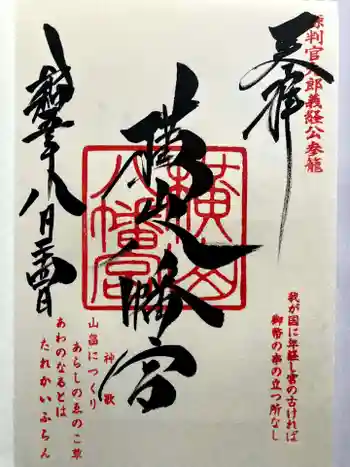 源判官九郎義経公参籠
奉拝
横山八幡宮
横山
八幡宮
我が国に年経し宮の古ければ
御幣の串の立つ所なし
神歌
山畠につくり
あらしのゑのこ草
あわのなるとは
たれかいふらん
八月